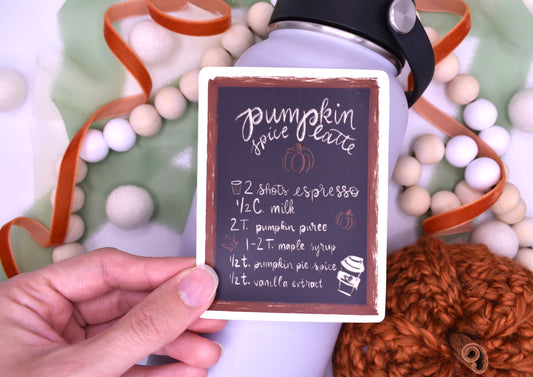 pumpkin
spice latte
2 shots espresso
1/2 C. milk
2T. pumpkin puree
1-2T. maple syrup
1/2 t. pumpkin pie spice
1/2 t. vanilla extract